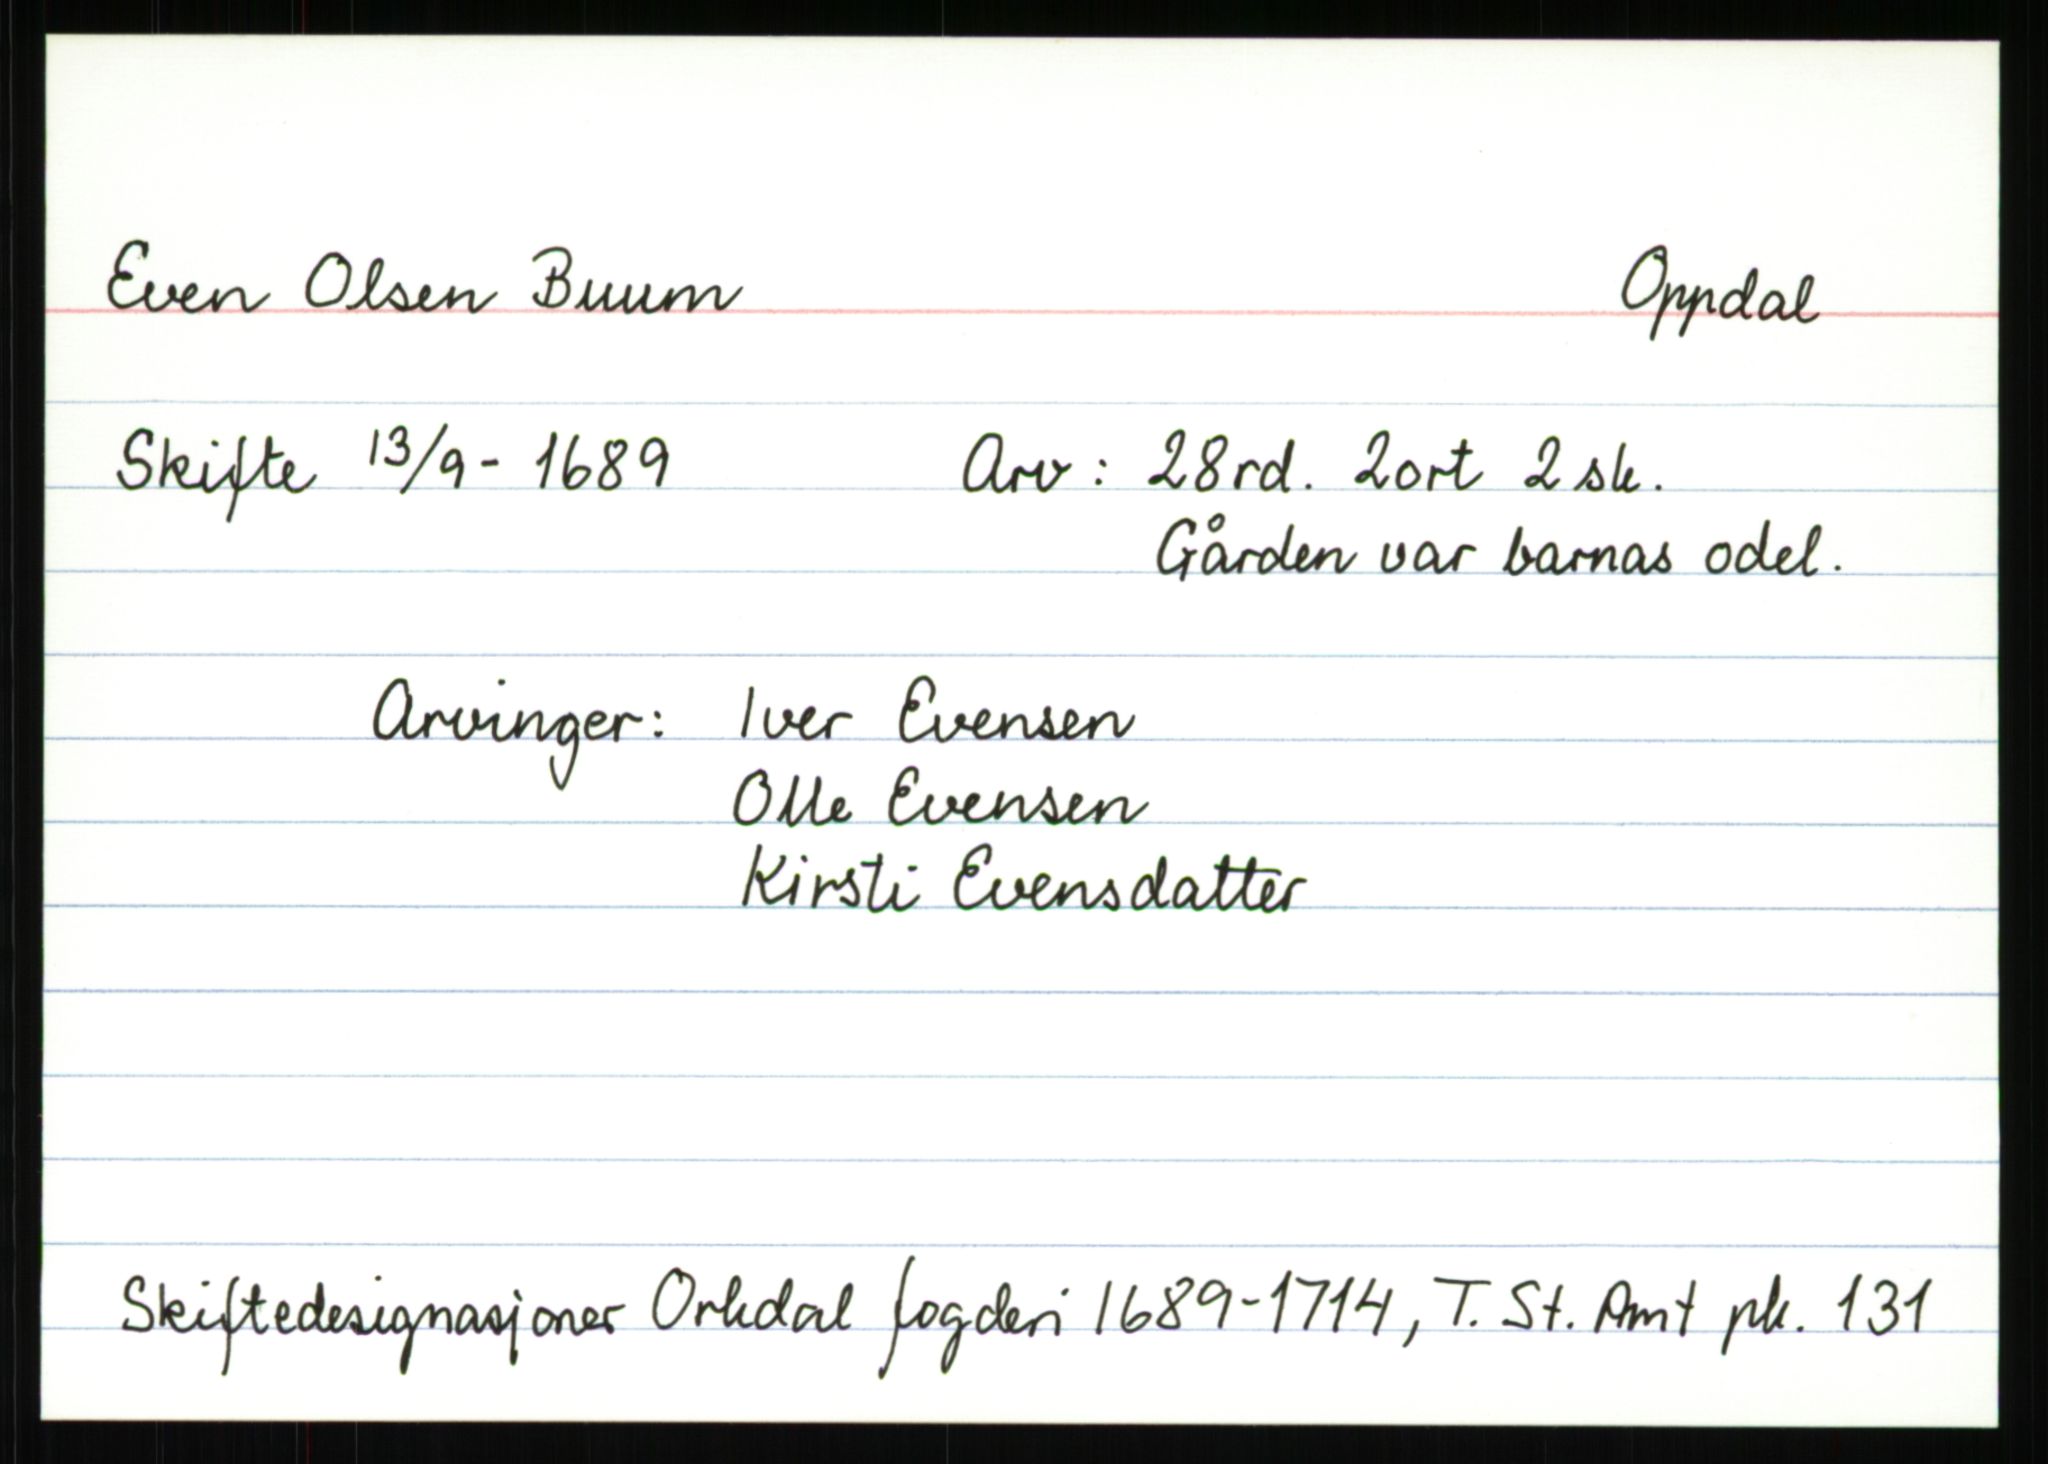 Even Olsen Buum Oppdal
Skifte 13/9 - 1689 Arv : 28rd. 2ort 2 sk.
Gården var barnas odel.
Arvinger: Iver Evensen
Olle Evensen
Kirsti Evensdatter
Skiftedesignasjoner Orkdal fogderi 1689-1714, T. St. Amt pk. 131